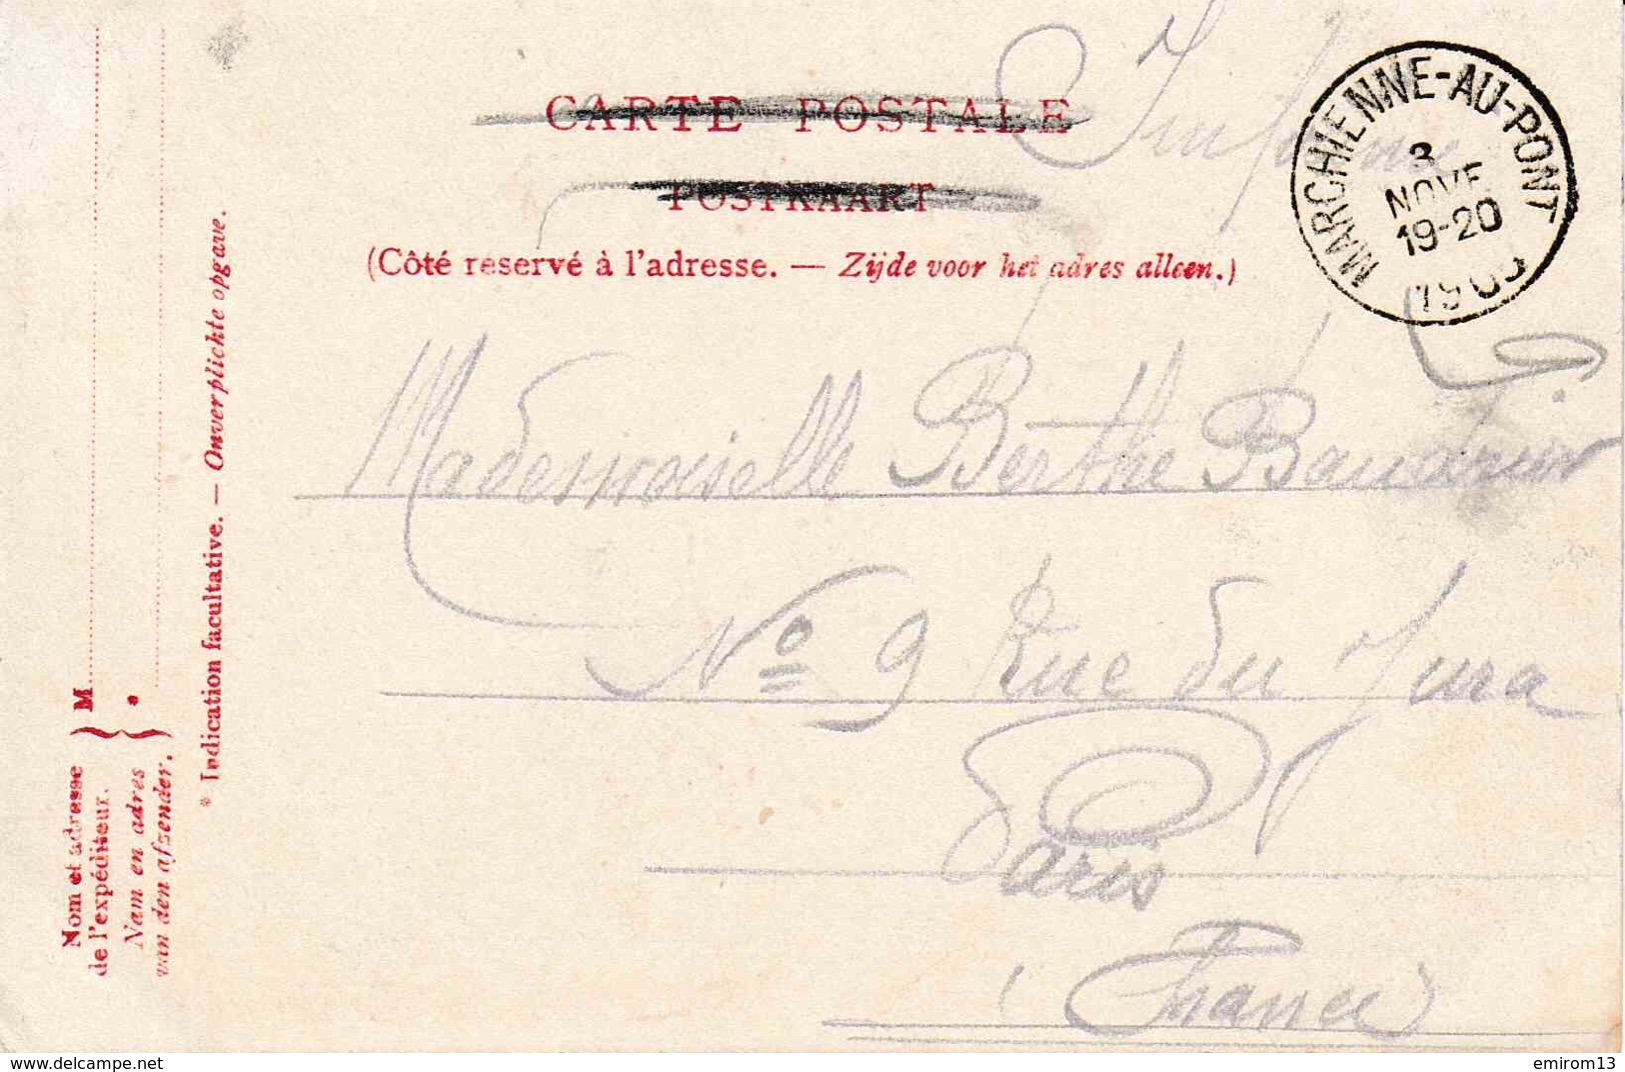 CARTE POSTALE
POSTKAART
(Côté reservé à l'adresse. — Zijde voor het adres alleen.)
MARCHIENNE-AU-PONT
3
NOVE
19-20
Mademoiselle Berthe
No 9 Rue du Jura
Paris
France
Nom et adresse
de l'expéditeur.
} M
Nam en adres
van den afzender.
} *
* Indication facultative. — Onverplichte opgave.
www.delcampe.net
emirom13